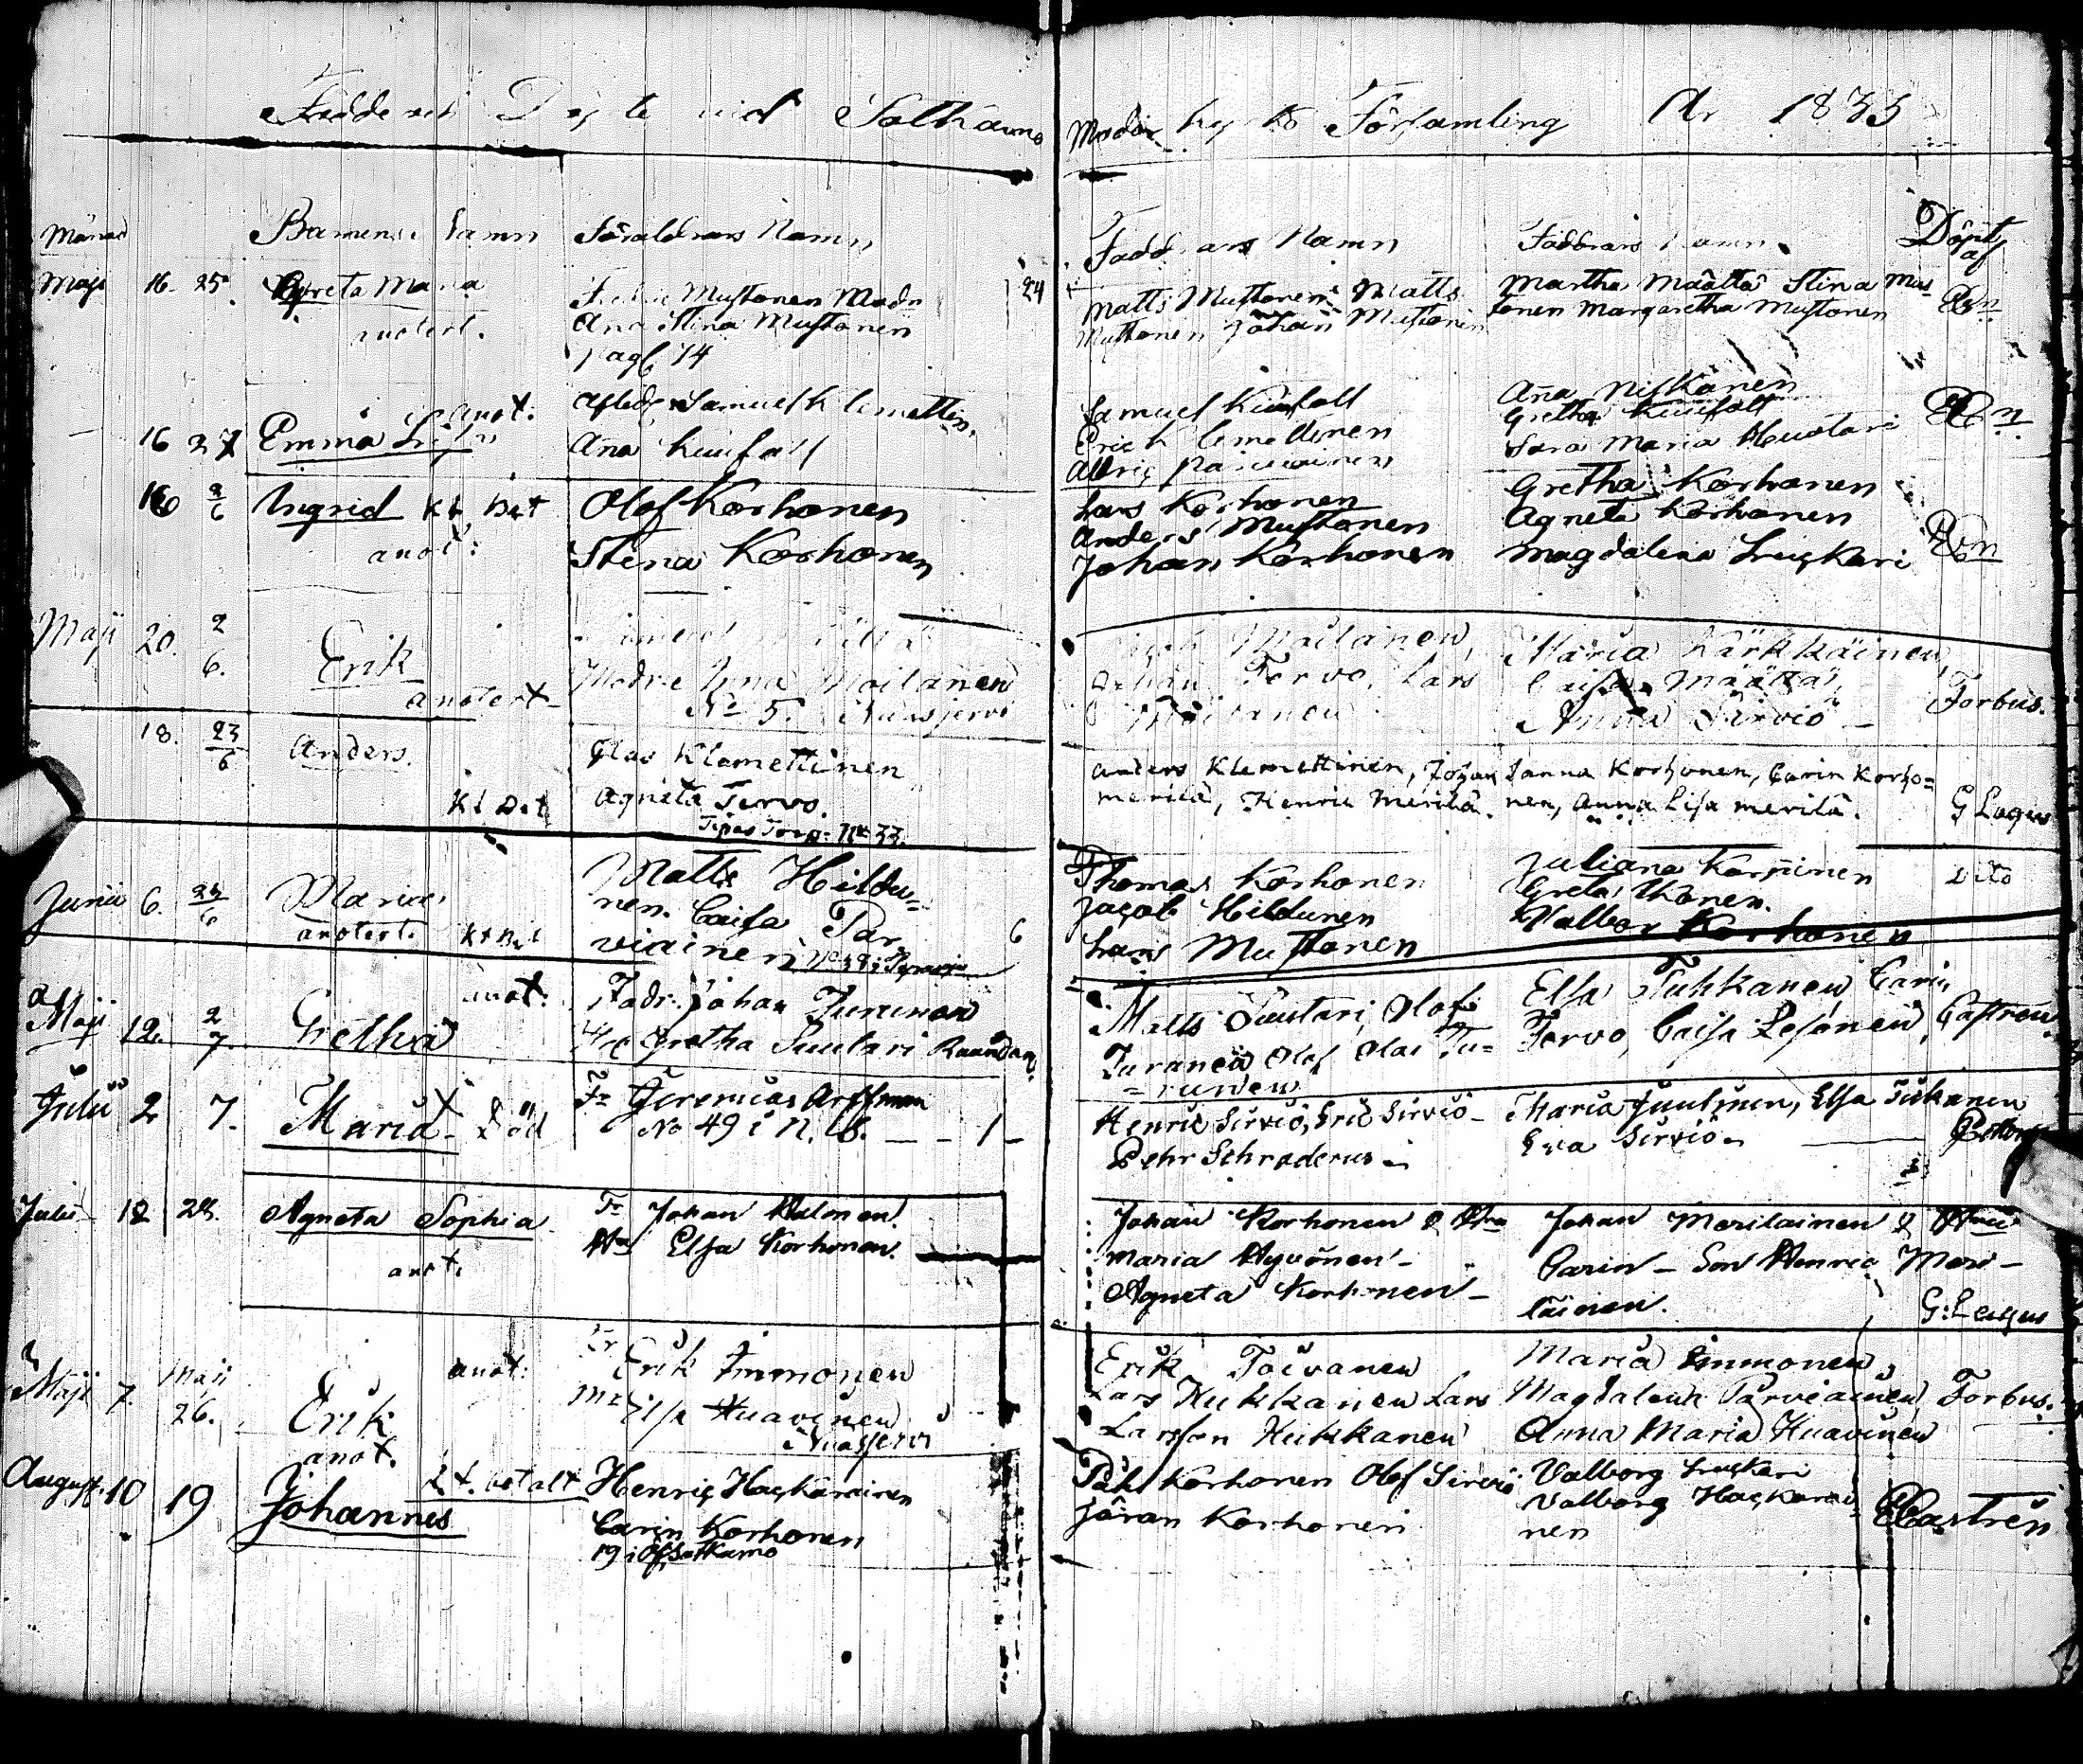 Födde och Döpte vid Sotkamo Moder kyrko Församling År 1835
Månad Barnens Namn Föräldrars Namn Faddrars Namn Faddrars Namn Döpt af
Maji 16. 25. Greta Maria
anotert.
Mustonen Modn
Ana Stina Mustonen
pag 74
24
Matts Mustonen Matts
Mustonen Johan Mustonen
Martha Määttä Stina Mus
tonen Margaretha Mustonen
anot.
16 27 Emma
Samuel Klemettin.
Ana Kuifall
Samuel Kuifall
Eric Klemettinen
Anna Niskanen
Gretha Kuifall
Sara Maria Huotari
16 2/6 Ingrid Kt Bet
anot:
Olof Korhonen
Stina Korhonen
Lars Korhonen
Anders Mustonen
Johan Korhonen
Gretha Korhonen
Agneta Korhonen
Magdalena Luskari
Maji 20. 2/6. Erik
anotert
Modr Anna Moilanen
No 5. Nuasjervi
Moilanen,
Johan Tervo, Lars
Moilanen
Maria Kärkkäinen,
Caisa Määttä,
Anna Sirviö
Forbus.
18. 23/6 Anders.
Kt Bet
Olas Klemettinen
Agneta Tervo.
No 33.
Anders Klemettinen, Johan
Merilä, Henric Merilä.
Sanna Korhonen, Carin Korho=
nen, Anna Lisa Merilä.
G Lagus
Junii 6. 23/6 Maria
anotert. Kt Bet
Matts Heldu=
nen. Caisa Par
viainen
6
Thomas Korhonen
Jacob Heldunen
Lars Mustonen
Juliana Karppinen
Greta Ikonen.
Valbor Korhonen
Dito
Maji 12. 2/7 Gretha
anot:
Fadr. Johan Turunen
Gretha Suutari
Matts Suutari, Olof
Turanen Olof Olai Tu=
=runen
Elsa Tuhkanen Carin
Tervo, Caisa Lesonen
Castren.
Julii 2 7. Maria Död
Jeremias Arffman
No 49 i N. B. 1
Henric Sirviö, Eric Sirviö
Pehr Schroderus
Maria Juutinen, Elsa Tuhkanen
Eva Sirviö
Julii 12 28. Agneta Sophia
anot.
Fr Johan Halonen.
Hu Elsa Korhonen.
Johan Korhonen & Hu
Maria Hyvönen
Agneta Korhonen
Johan Meriläinen & Hu
Carin - Son Henric Meri-
läinen.
G: Lagus
Maji 7. Maji 26. Erik
anot:
Fr Erik Immonen
Mr Elsa Huavinen
Nuasjervi
Erik Toivanen
Lars Heikkanen Lars
Larsson Heikkanen
Maria Immonen
Magdalena Parviainen
Anna Maria Huavinen
Forbus.
August. 10 19 Johannes
anot.
Kt. betalt
Henric Hackarainen
Carin Korhonen
19 i Sotkamo
Påhl Korhonen Olof Sirviö
Jöran Korhonen
Valborg Luskari
Valborg Hackarai
nen
Castrén